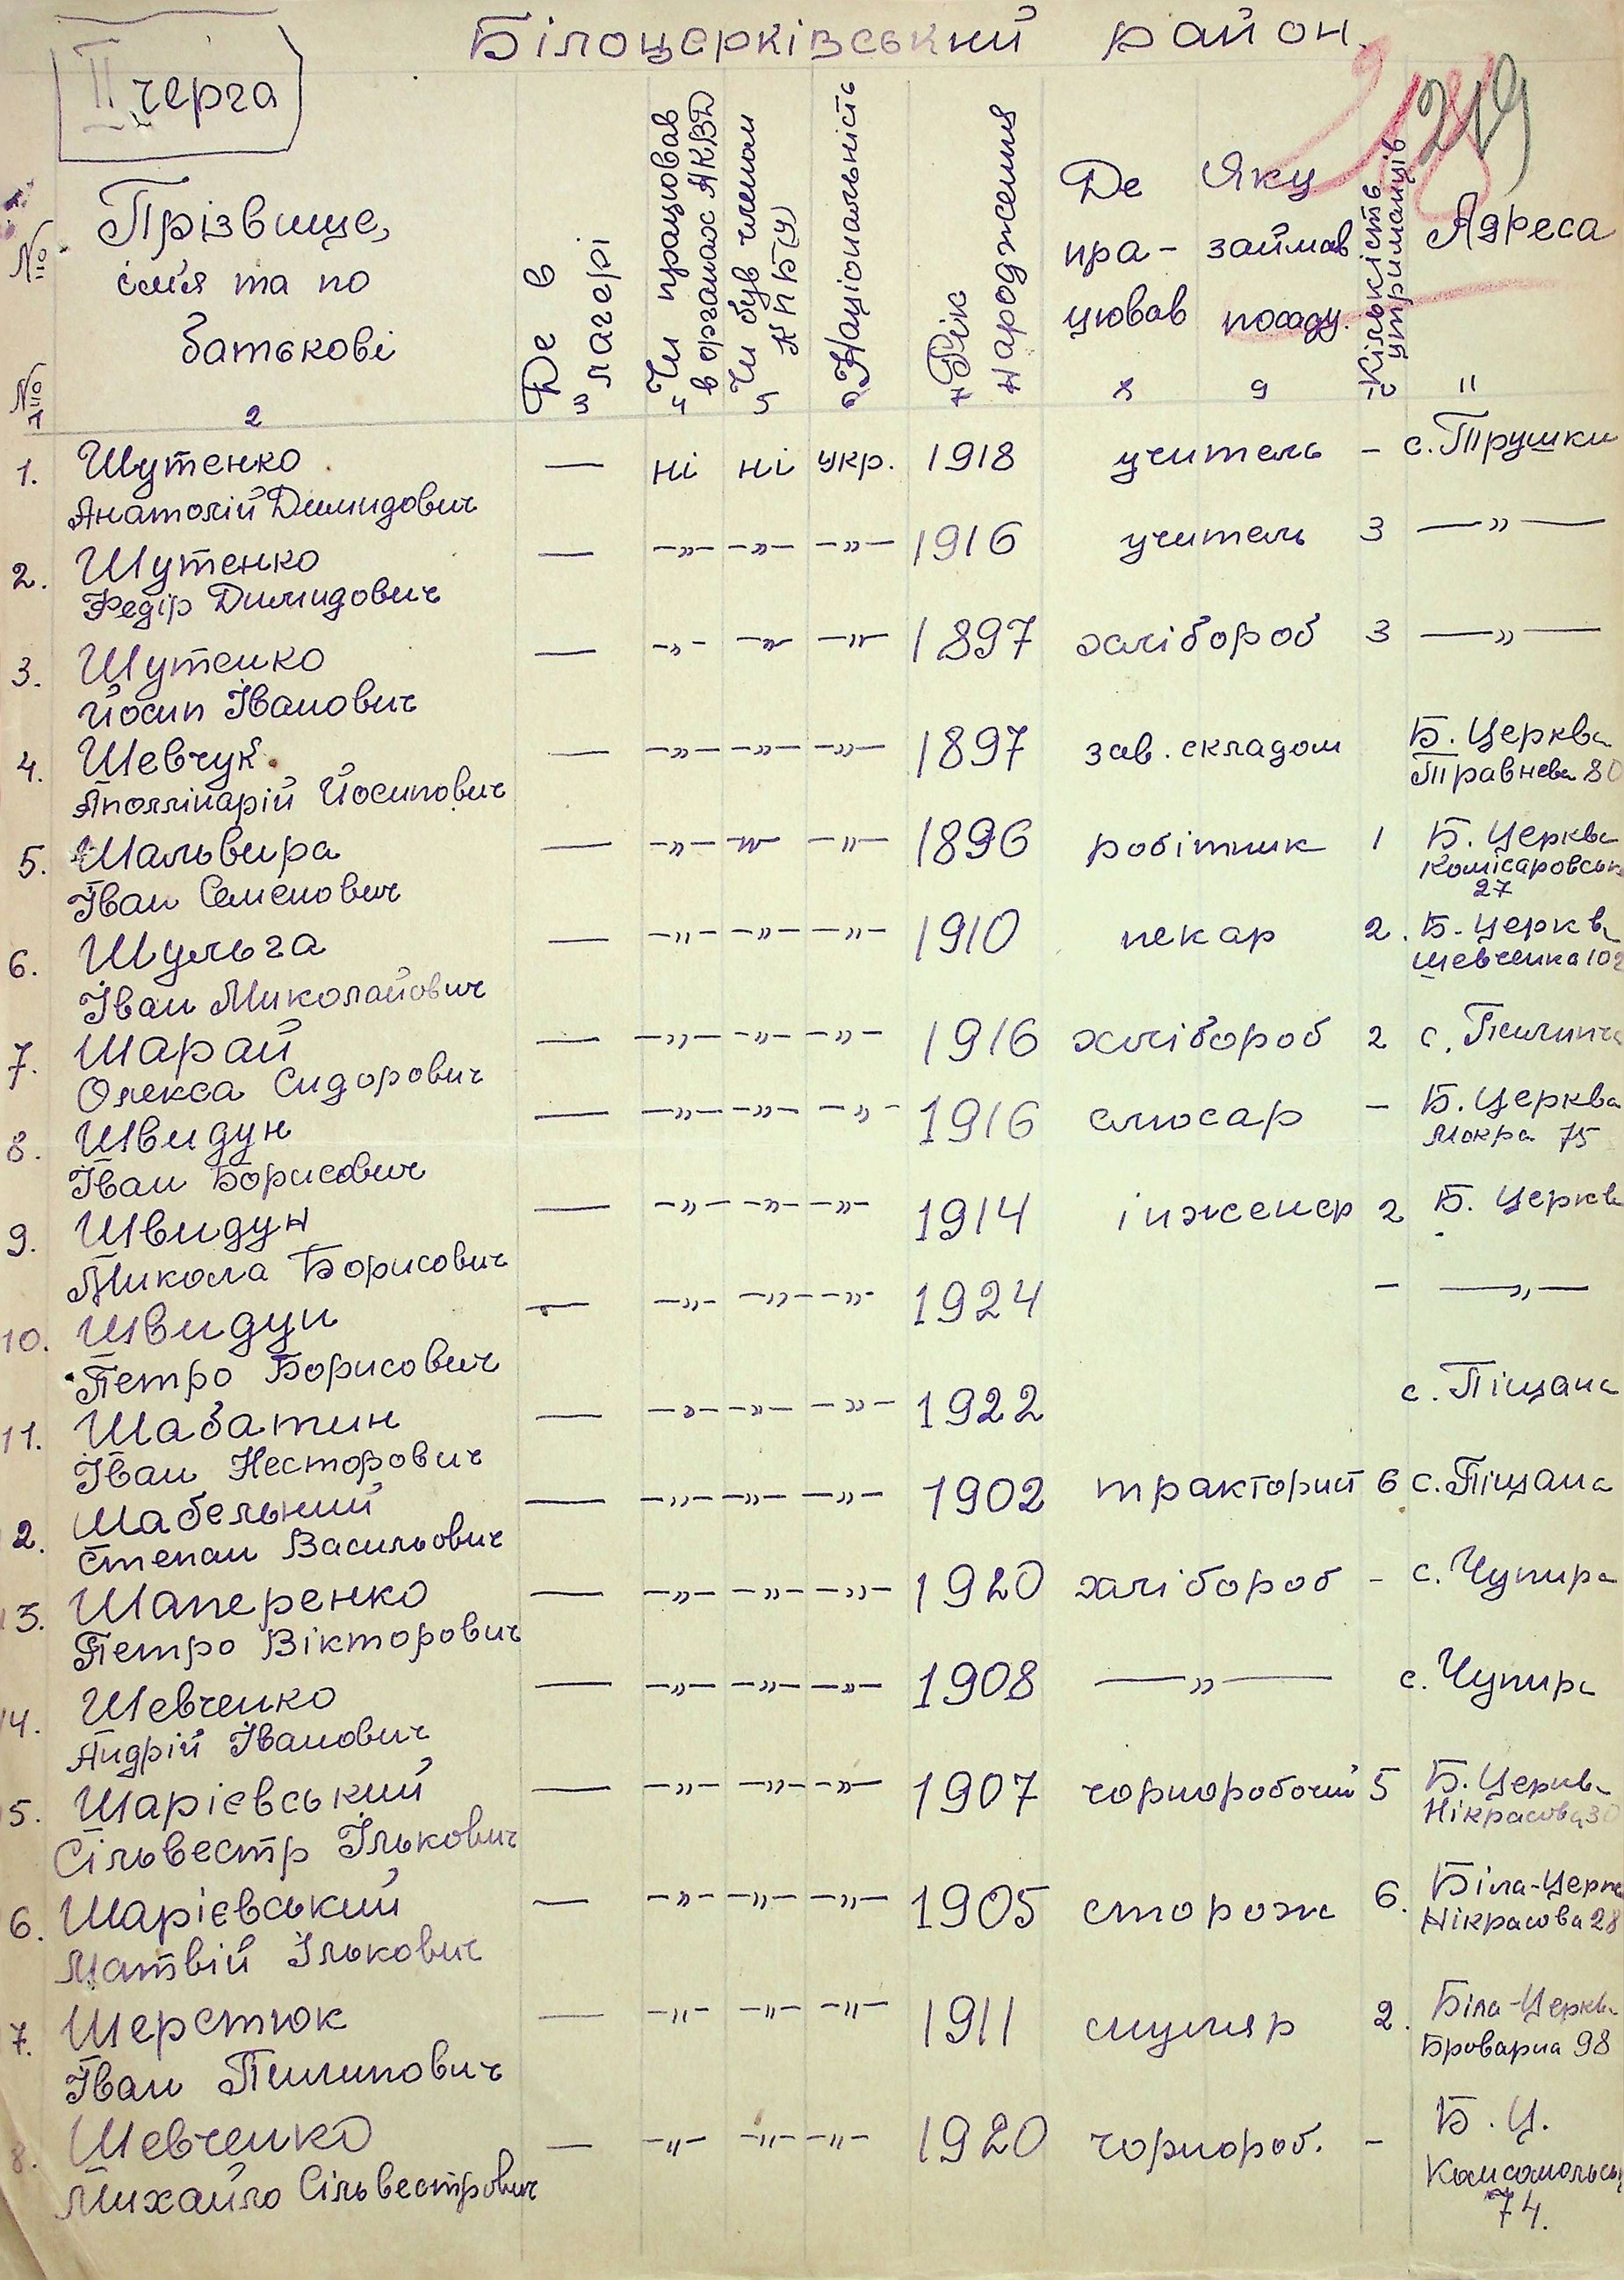 Білоцерківський район.
II черга
219
№ по
Прізвище,
ім'я та по
батькові
Де в
лагері
Чи працював
в органах НКВД
Чи був членом
КПБ(У)
Національність
Рік
народження
Де пра-
цював
Яку
займав
посаду.
Кількість
утриманців
Адреса
1 2 3 4 5 6 7 8 9 10 11
1. Шутенко — ні ні укр. 1918 учитель – с. Трушки
Анатолій Димидович
2. Шутенко — –»– –»– –»– 1916 учитель 3 —»—
Федір Димидович
3. Шутенко — –»– –»– –»– 1897 хлібороб 3 —»—
Йосип Іванович
4. Шевчук — –»– –»– –»– 1897 зав. складом Б. Церква
Аполлінарій Йосипович Травнева 80
5. Шальвира — –»– –»– –»– 1896 робітник 1 Б. Церква
Іван Семенович Комісаровськ
27
6. Шульга — –»– –»– –»– 1910 пекар 2. Б. Церкв
Іван Миколайович Шевченка 102
7. Шарай — –»– –»– –»– 1916 хлібороб 2 с. Пилипча
Олекса Сидорович
8. Швидун — –»– –»– –»– 1916 слюсар – Б. Церква
Іван Борисович Мокра 75
9. Швидун — –»– –»– –»– 1914 інженер 2 Б. Церкв
Микола Борисович
10. Швидун — –»– –»– –»– 1924 – —»—
Петро Борисович
11. Шабатин — –»– –»– –»– 1922 с. Піщана
Іван Несторович
2. Шабельний — –»– –»– –»– 1902 тракторит 6 с. Піщана
Степан Васильович
13. Шаперенко — –»– –»– –»– 1920 хлібороб – с. Чупира
Петро Вікторович
14. Шевченко — –»– –»– –»– 1908 —»— с. Чупира
Андрій Іванович
15. Шарієвський — –»– –»– –»– 1907 чорноробочий 5 Б. Церква
Сільвестр Ількович Нікрасова 30
6. Шарієвський — –»– –»– –»– 1905 сторож 6. Біла-Церкв
Матвій Ількович Нікрасова 28
7. Шерстюк — –»– –»– –»– 1911 муляр 2. Біла-Церква
Іван Пилипович Броварна 98
8. Шевченко — –»– –»– –»– 1920 чорнороб. – Б. Ц.
Михайло Сільвестрович Комсомольськ
74.